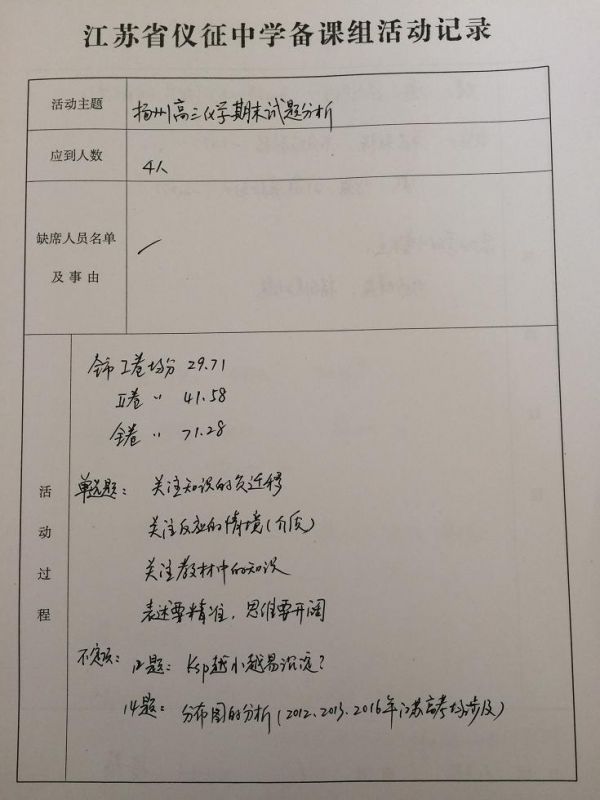 江苏省仪征中学备课组活动记录
活动主题
扬州高三化学期末试题分析
应到人数
4人
缺席人员名单
及事由
活动过程
全市I卷均分 29.71
II卷 〃 41.58
全卷 〃 71.28
单选题: 关注知识的负迁移
关注反应的情境(介质)
关注教材中的知识
表述要精准，思维要开阔
不定项: 12题: Ksp越小越易沉淀?
14题: 分布图的分析(2012、2015、2016年江苏高考均涉及)